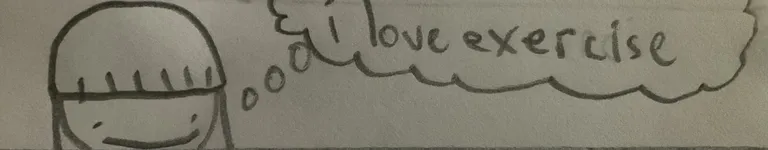 i love exercise